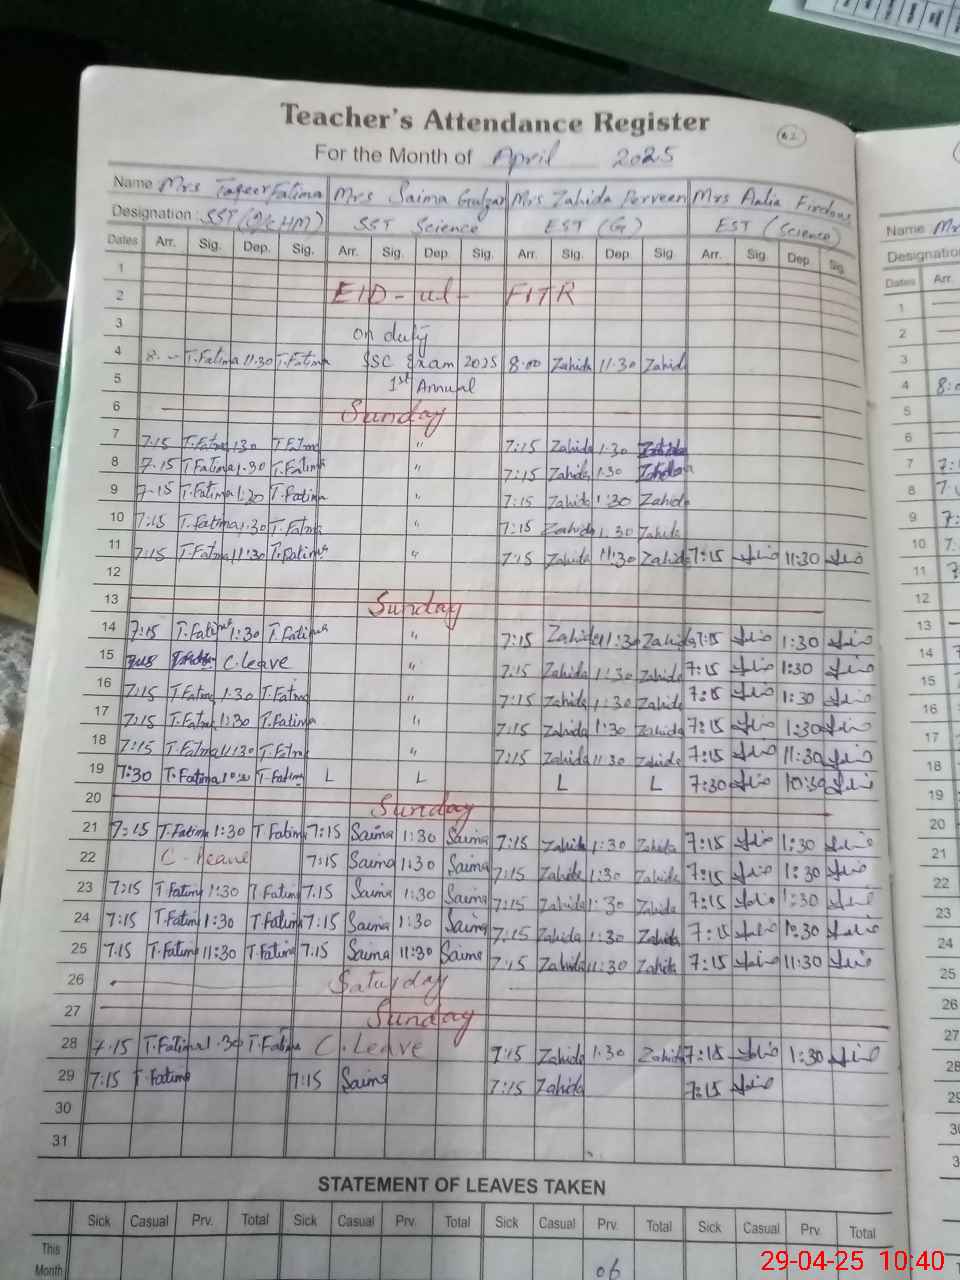 Teacher's Attendance Register
62
For the Month of April 2025
Name Mrs Taqeer Fatima Mrs Saima Gulzar Mrs Zahida Perveen Mrs Aalia Firdous
Designation: SST (I/C HM) SST Science EST (G) EST (Science)
Dates Arr. Sig. Dep. Sig. Arr. Sig. Dep. Sig. Arr. Sig. Dep. Sig. Arr. Sig. Dep. Sig.
1
2 EID-ul-FITR
3 on duty
4 8. - T.Fatima 11:30 T.Fatima SSC Exam 2025 8:00 Zahida 11:30 Zahida
5 1st Annual
6 Sunday
7 7:15 T.Fatma 1:30 T.Fatma " 7:15 Zahida 1:30 Zahida
8 7-15 T Fatima 1.30 T.Fatima " 7:15 Zahida 1:30 Zahida
9 7-15 T.Fatima 1:20 T.Fatima " 7:15 Zahida 1:30 Zahida
10 7:15 T.Fatima 1.30 T.Fatma " 7:15 Zahida 1.30 Zahida
11 7:15 T.Fatma 11:30 T.Fatima " 7:15 Zahida 11:30 Zahida 7:15 11:30
12
13 Sunday
14 7:15 T.Fatima 1:30 T.Fatima " 7:15 Zahida 11:30 Zahida 7:15 1:30
15 C.leave " 7:15 Zahida 1:30 Zahida 7:15 1:30
16 7:15 T.Fatma 1:30 T.Fatima " 7:15 Zahida 1:30 Zahida 7:15 1:30
17 7:15 T.Fatma 1:30 T.Fatima " 7:15 Zahida 1:30 Zahida 7:15 1:30
18 7:15 T.Fatma 11:30 T.Fatma " 7:15 Zahida 11:30 Zahida 7:15 11:30
19 7:30 T.Fatima 10:30 T.Fatima L L L L 7:30 10:30
20 Sunday
21 7:15 T.Fatima 1:30 T Fatima 7:15 Saima 1:30 Saima 7:15 Zahida 1:30 Zahida 7:15 1:30
22 C.Leave 7:15 Saima 1:30 Saima 7:15 Zahida 1:30 Zahida 7:15 1:30
23 7:15 T Fatima 1:30 T Fatima 7.15 Saima 1:30 Saima 7:15 Zahida 1:30 Zahida 7:15 1:30
24 7:15 T.Fatima 1:30 T.Fatima 7:15 Saima 1:30 Saima 7:15 Zahida 1:30 Zahida 7:15 1:30
25 7.15 T.Fatima 11:30 T.Fatima 7.15 Saima 11:30 Saima 7:15 Zahida 11:30 Zahida 7:15 11:30
26 Saturday
27 Sunday
28 7.15 T.Fatima 1.30 T.Fatima C.Leave 7:15 Zahida 1:30 Zahida 7:15 1:30
29 7:15 T.Fatima 7:15 Saima 7:15 Zahida 7:15
30
31
STATEMENT OF LEAVES TAKEN
Sick Casual Prv. Total Sick Casual Prv. Total Sick Casual Prv. Total Sick Casual Prv. Total
This
Month
06
Name Mrs
Designation
Dates Arr.
1
2
3
4 8:0
5
6
7
8
9
10
11
12
13
14
15
16
17
18
19
20
21
22
23
24
25
26
27
28
29
29-04-25 10:40